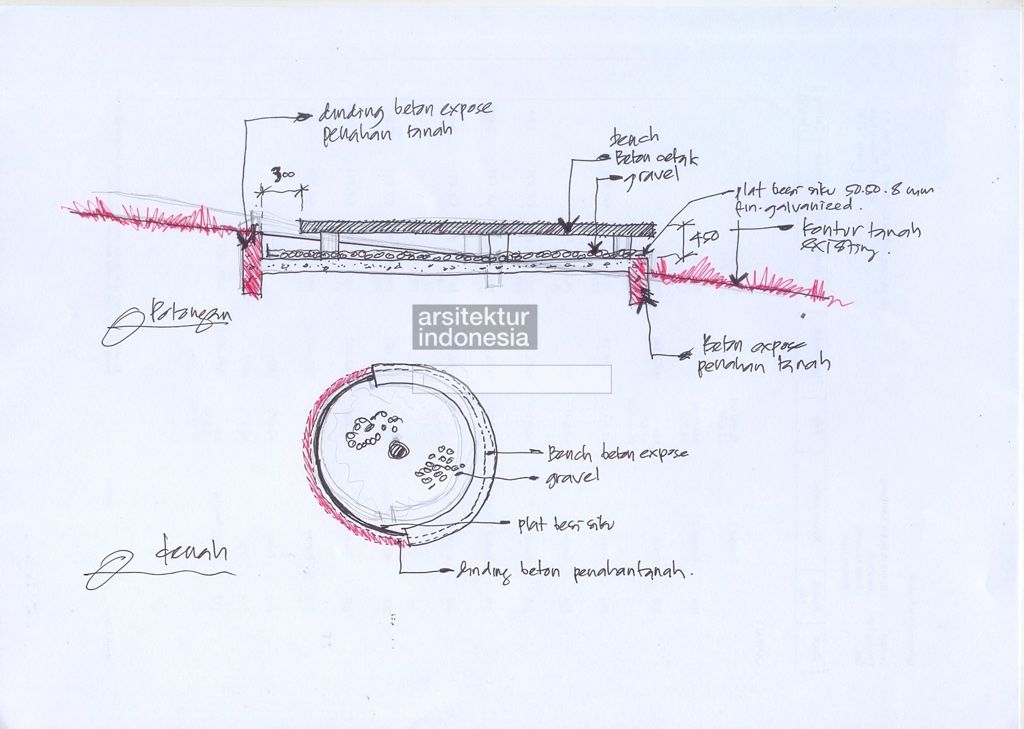 dinding beton expose
penahan tanah
300
bench
Beton cetak
gravel
plat besi siku 50.50.8 mm
fin. galvanized.
450
kontur tanah
EXISTing.
Potongan
arsitektur
indonesia
Beton expose
penahan tanah
Bench beton expose
gravel
plat besi siku
denah
dinding beton penahan tanah.